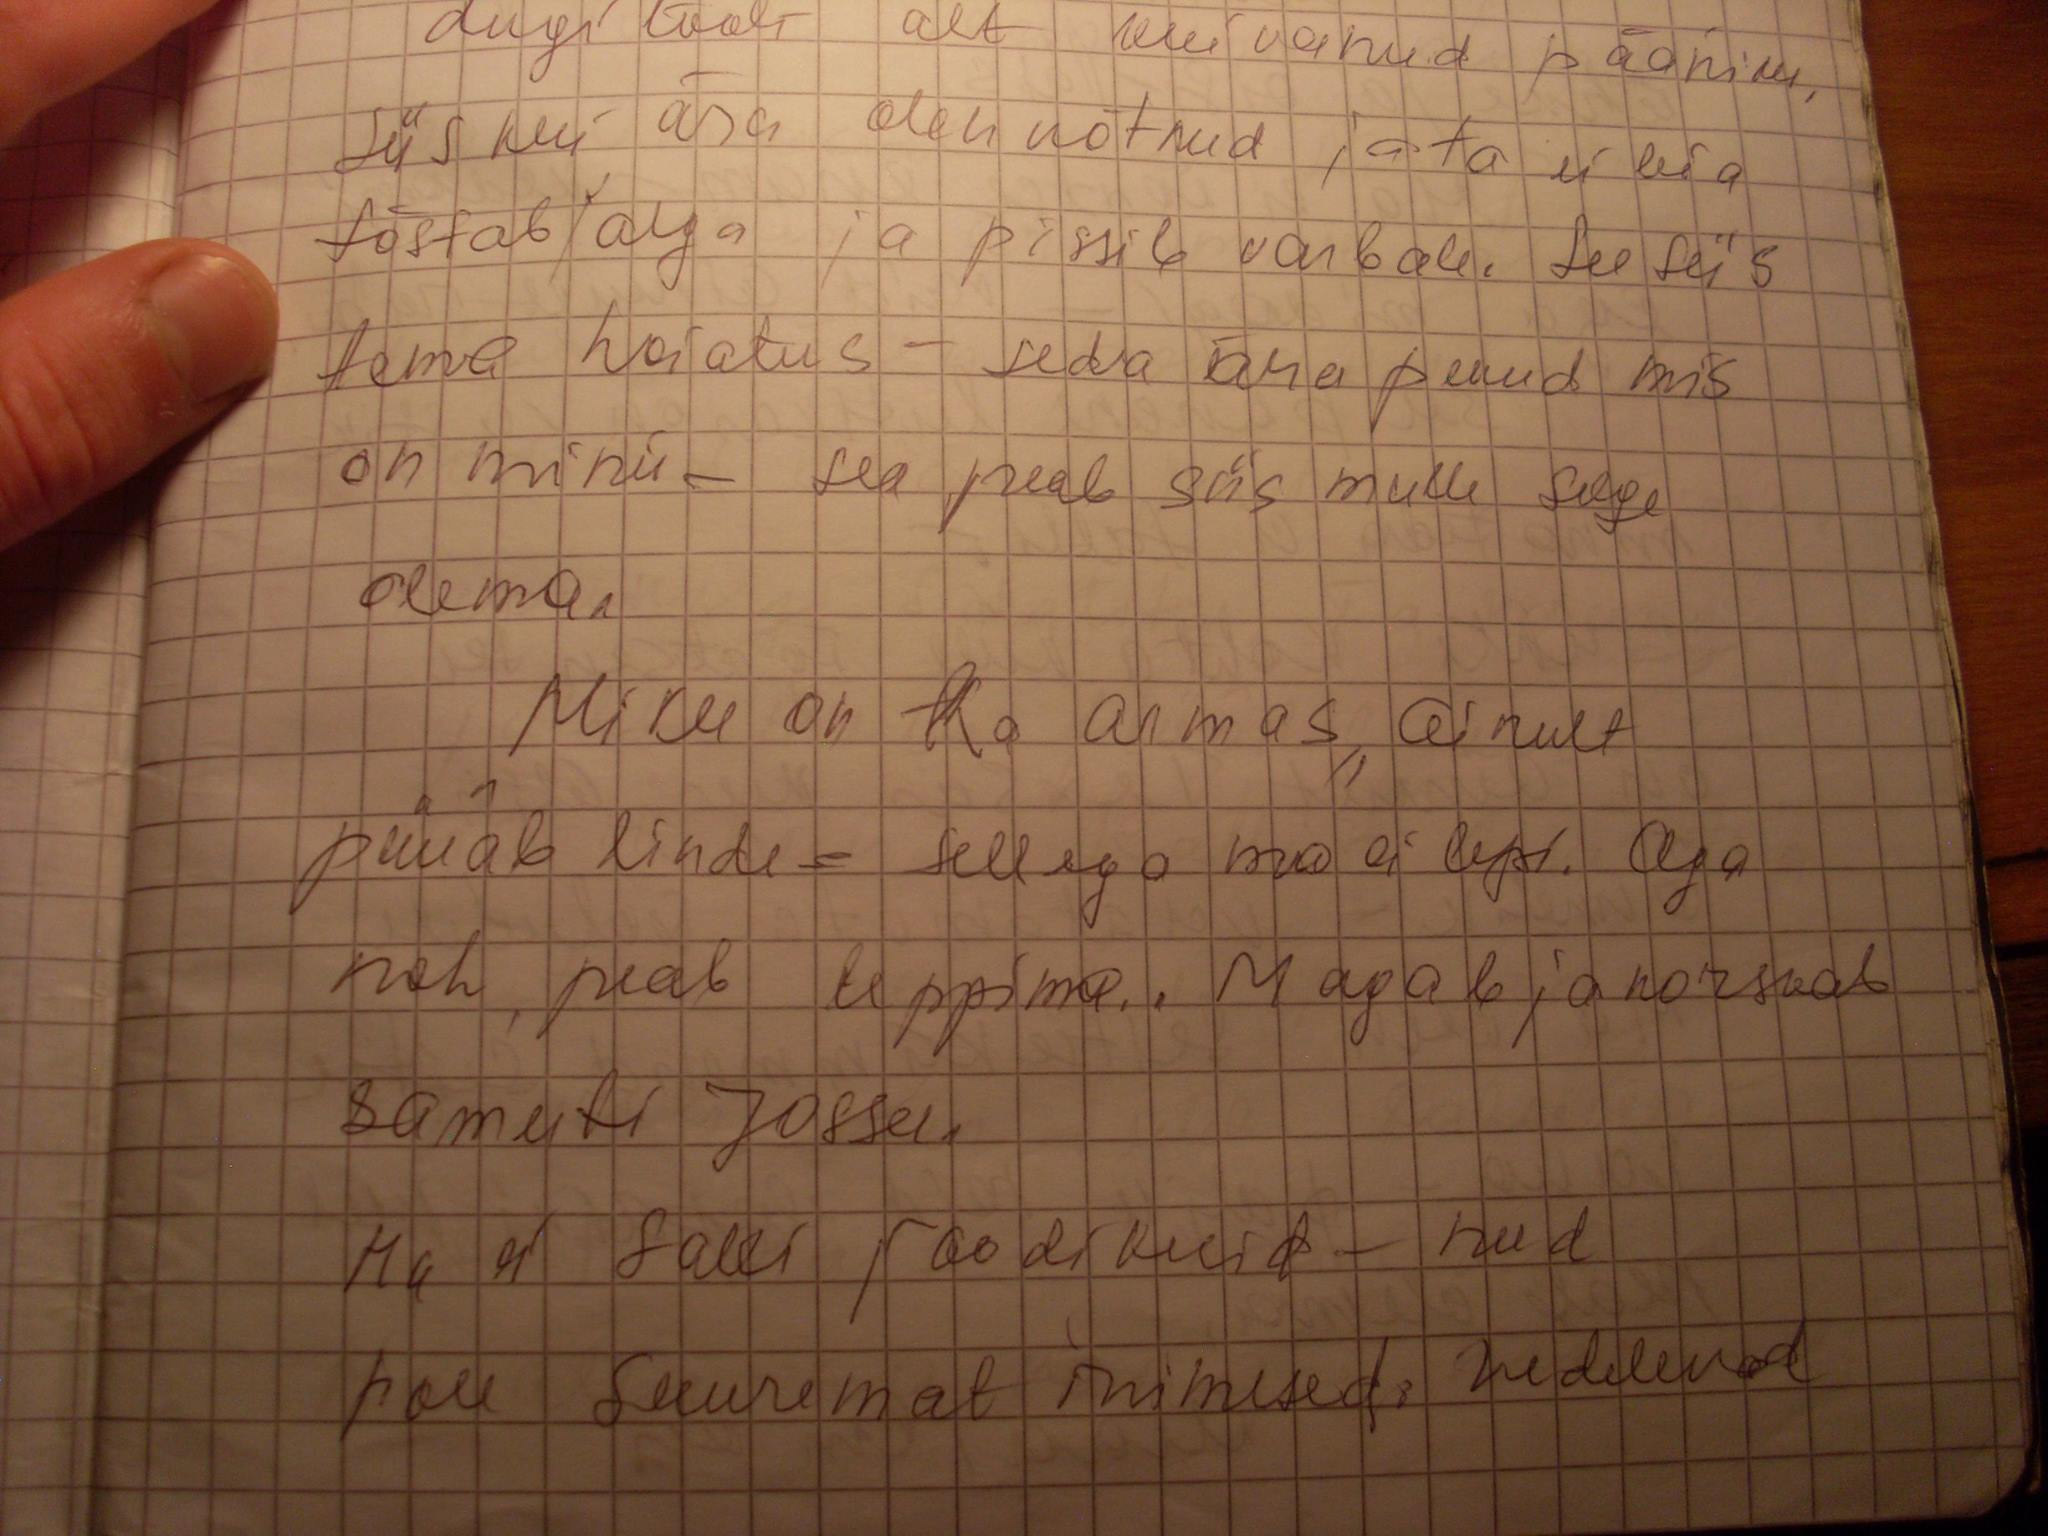 tugitooli alt kuivanud päänika,
siis kui ära olen võtnud ja ta ei leia
tõstab jalga ja pissib varbale. See siis
tema hoiatus - seda ära penud mis
on minu - see peab siis mulle selge
olema.
Miku on ka armas, ainult
püüab linde - sellega ma ei lepi. Aga
noh, peab leppima.. Magab ja norskab
samuti Jossu.
Ma ei salli joodikuid - nud
pole suuremat inimesed. Nedelevad